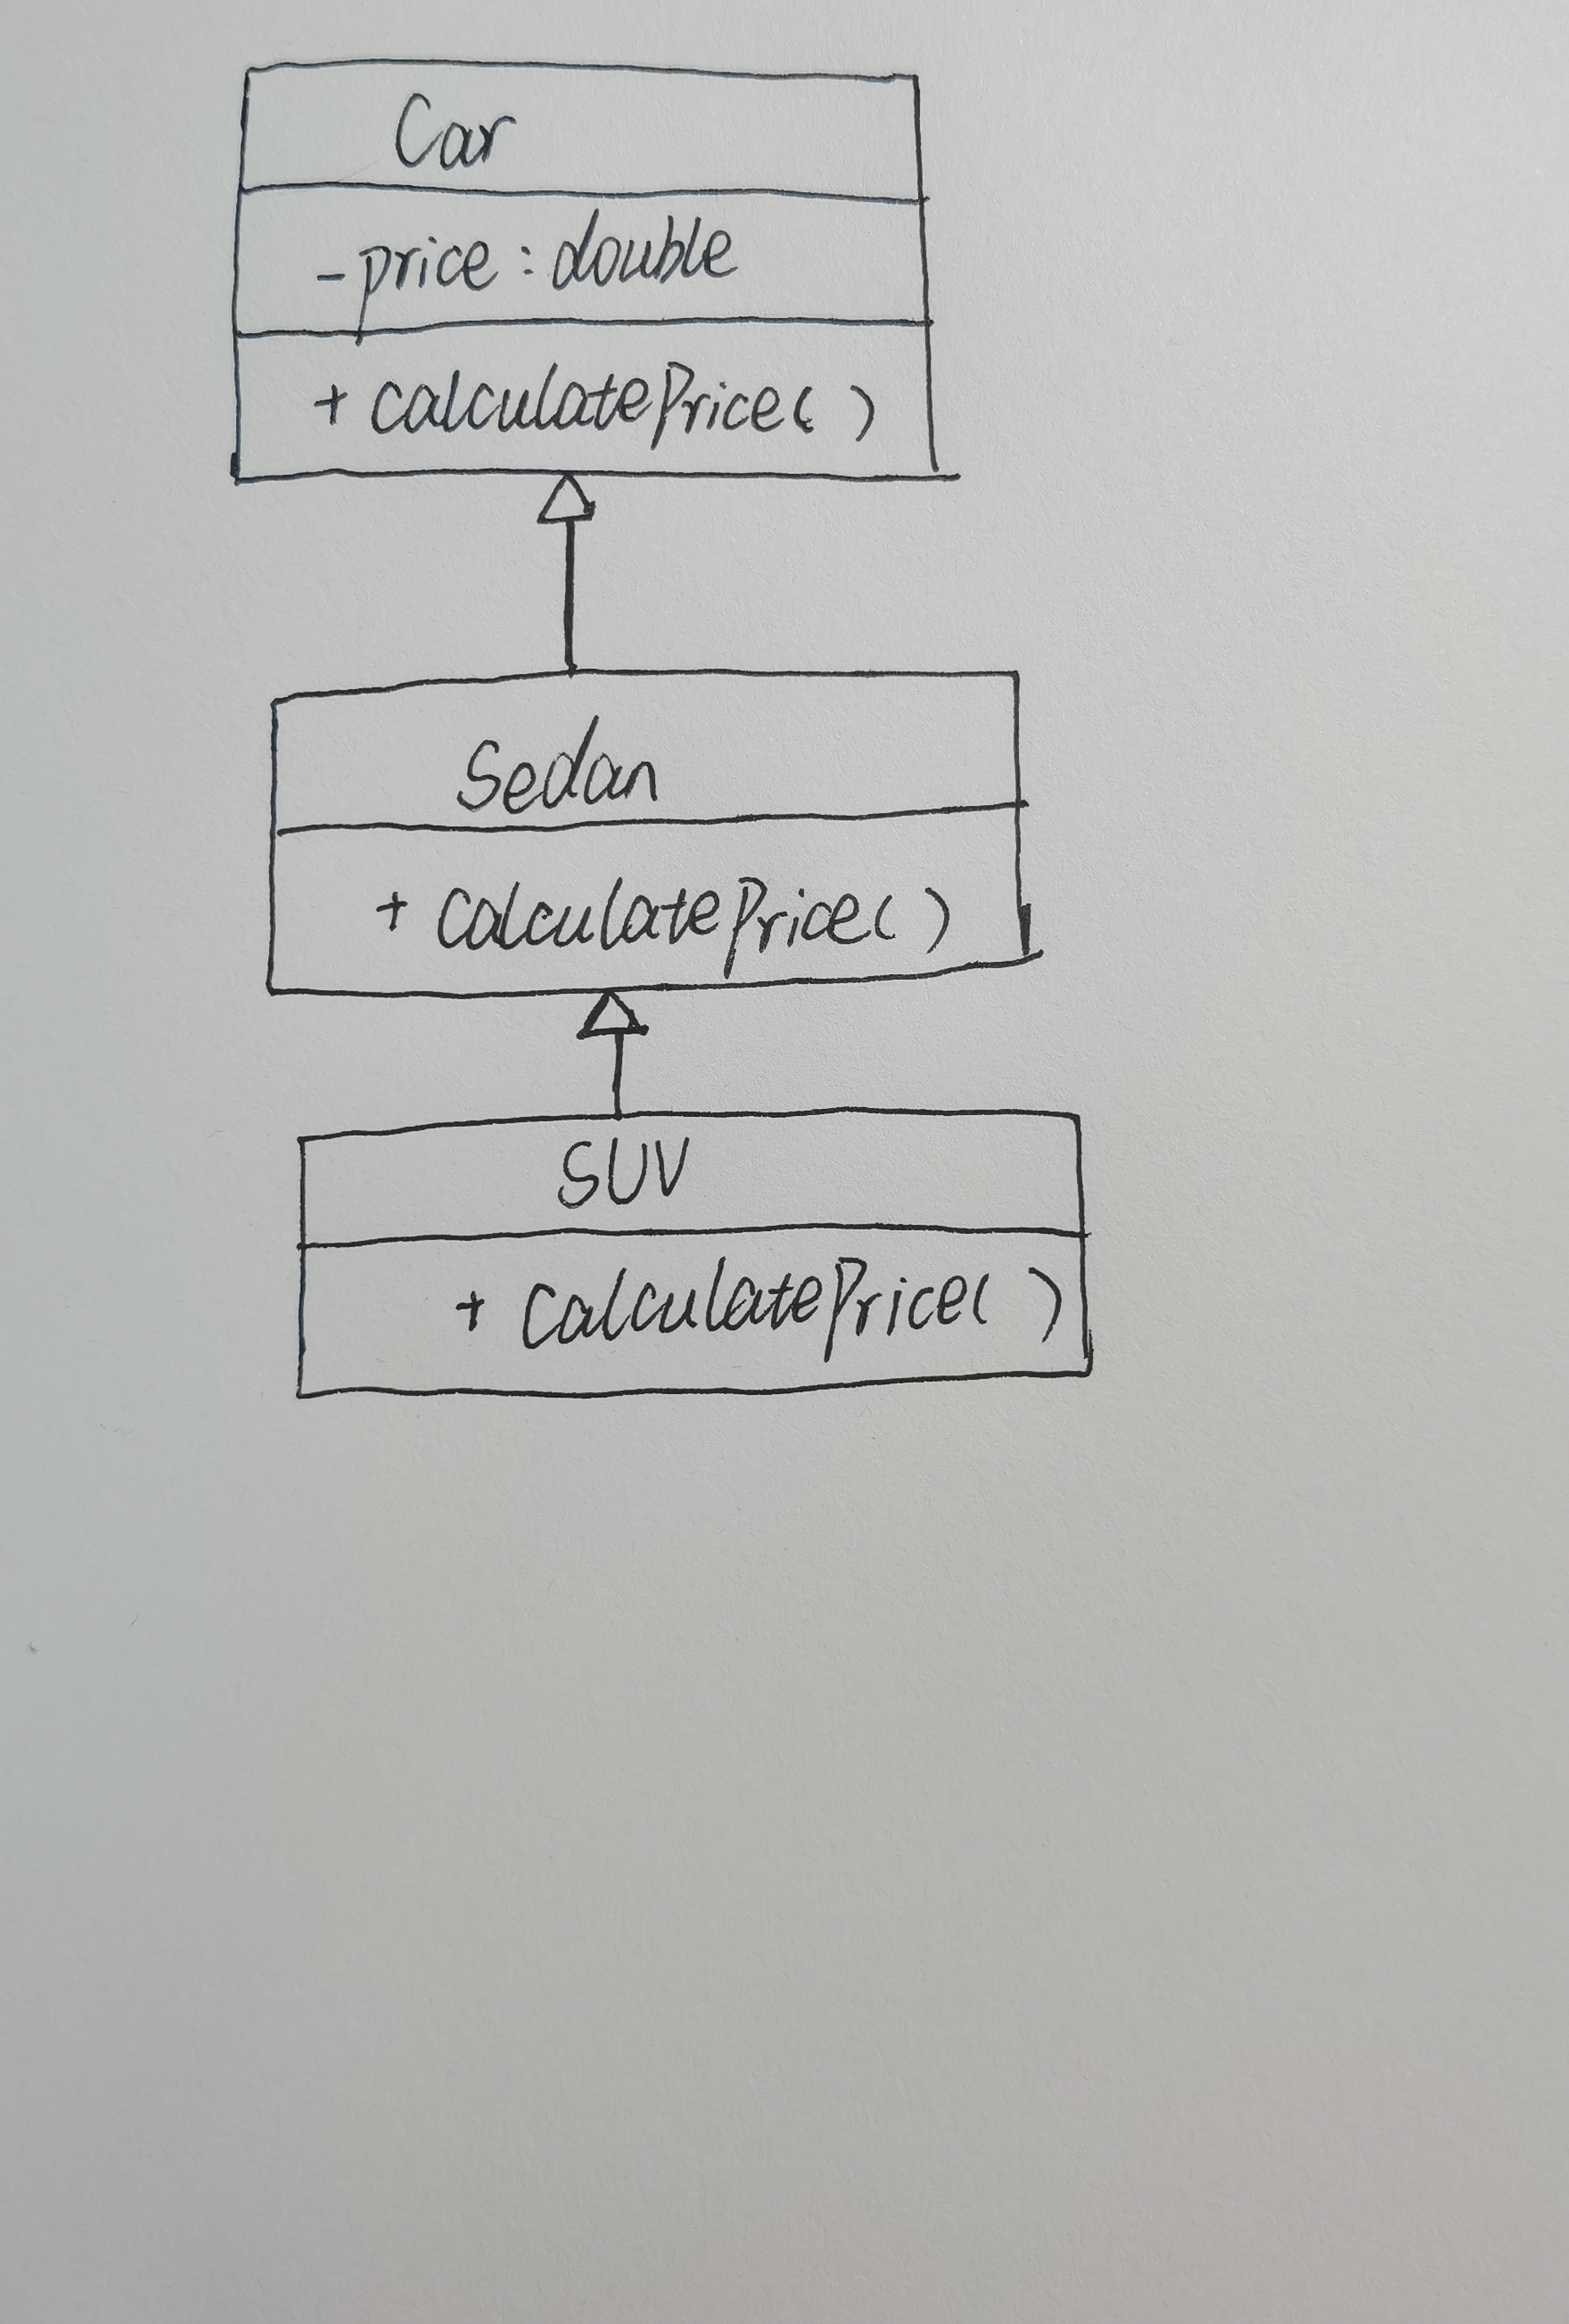 Car
- price : double
+ calculatePrice( )
Sedan
+ calculatePrice( )
SUV
+ calculatePrice( )